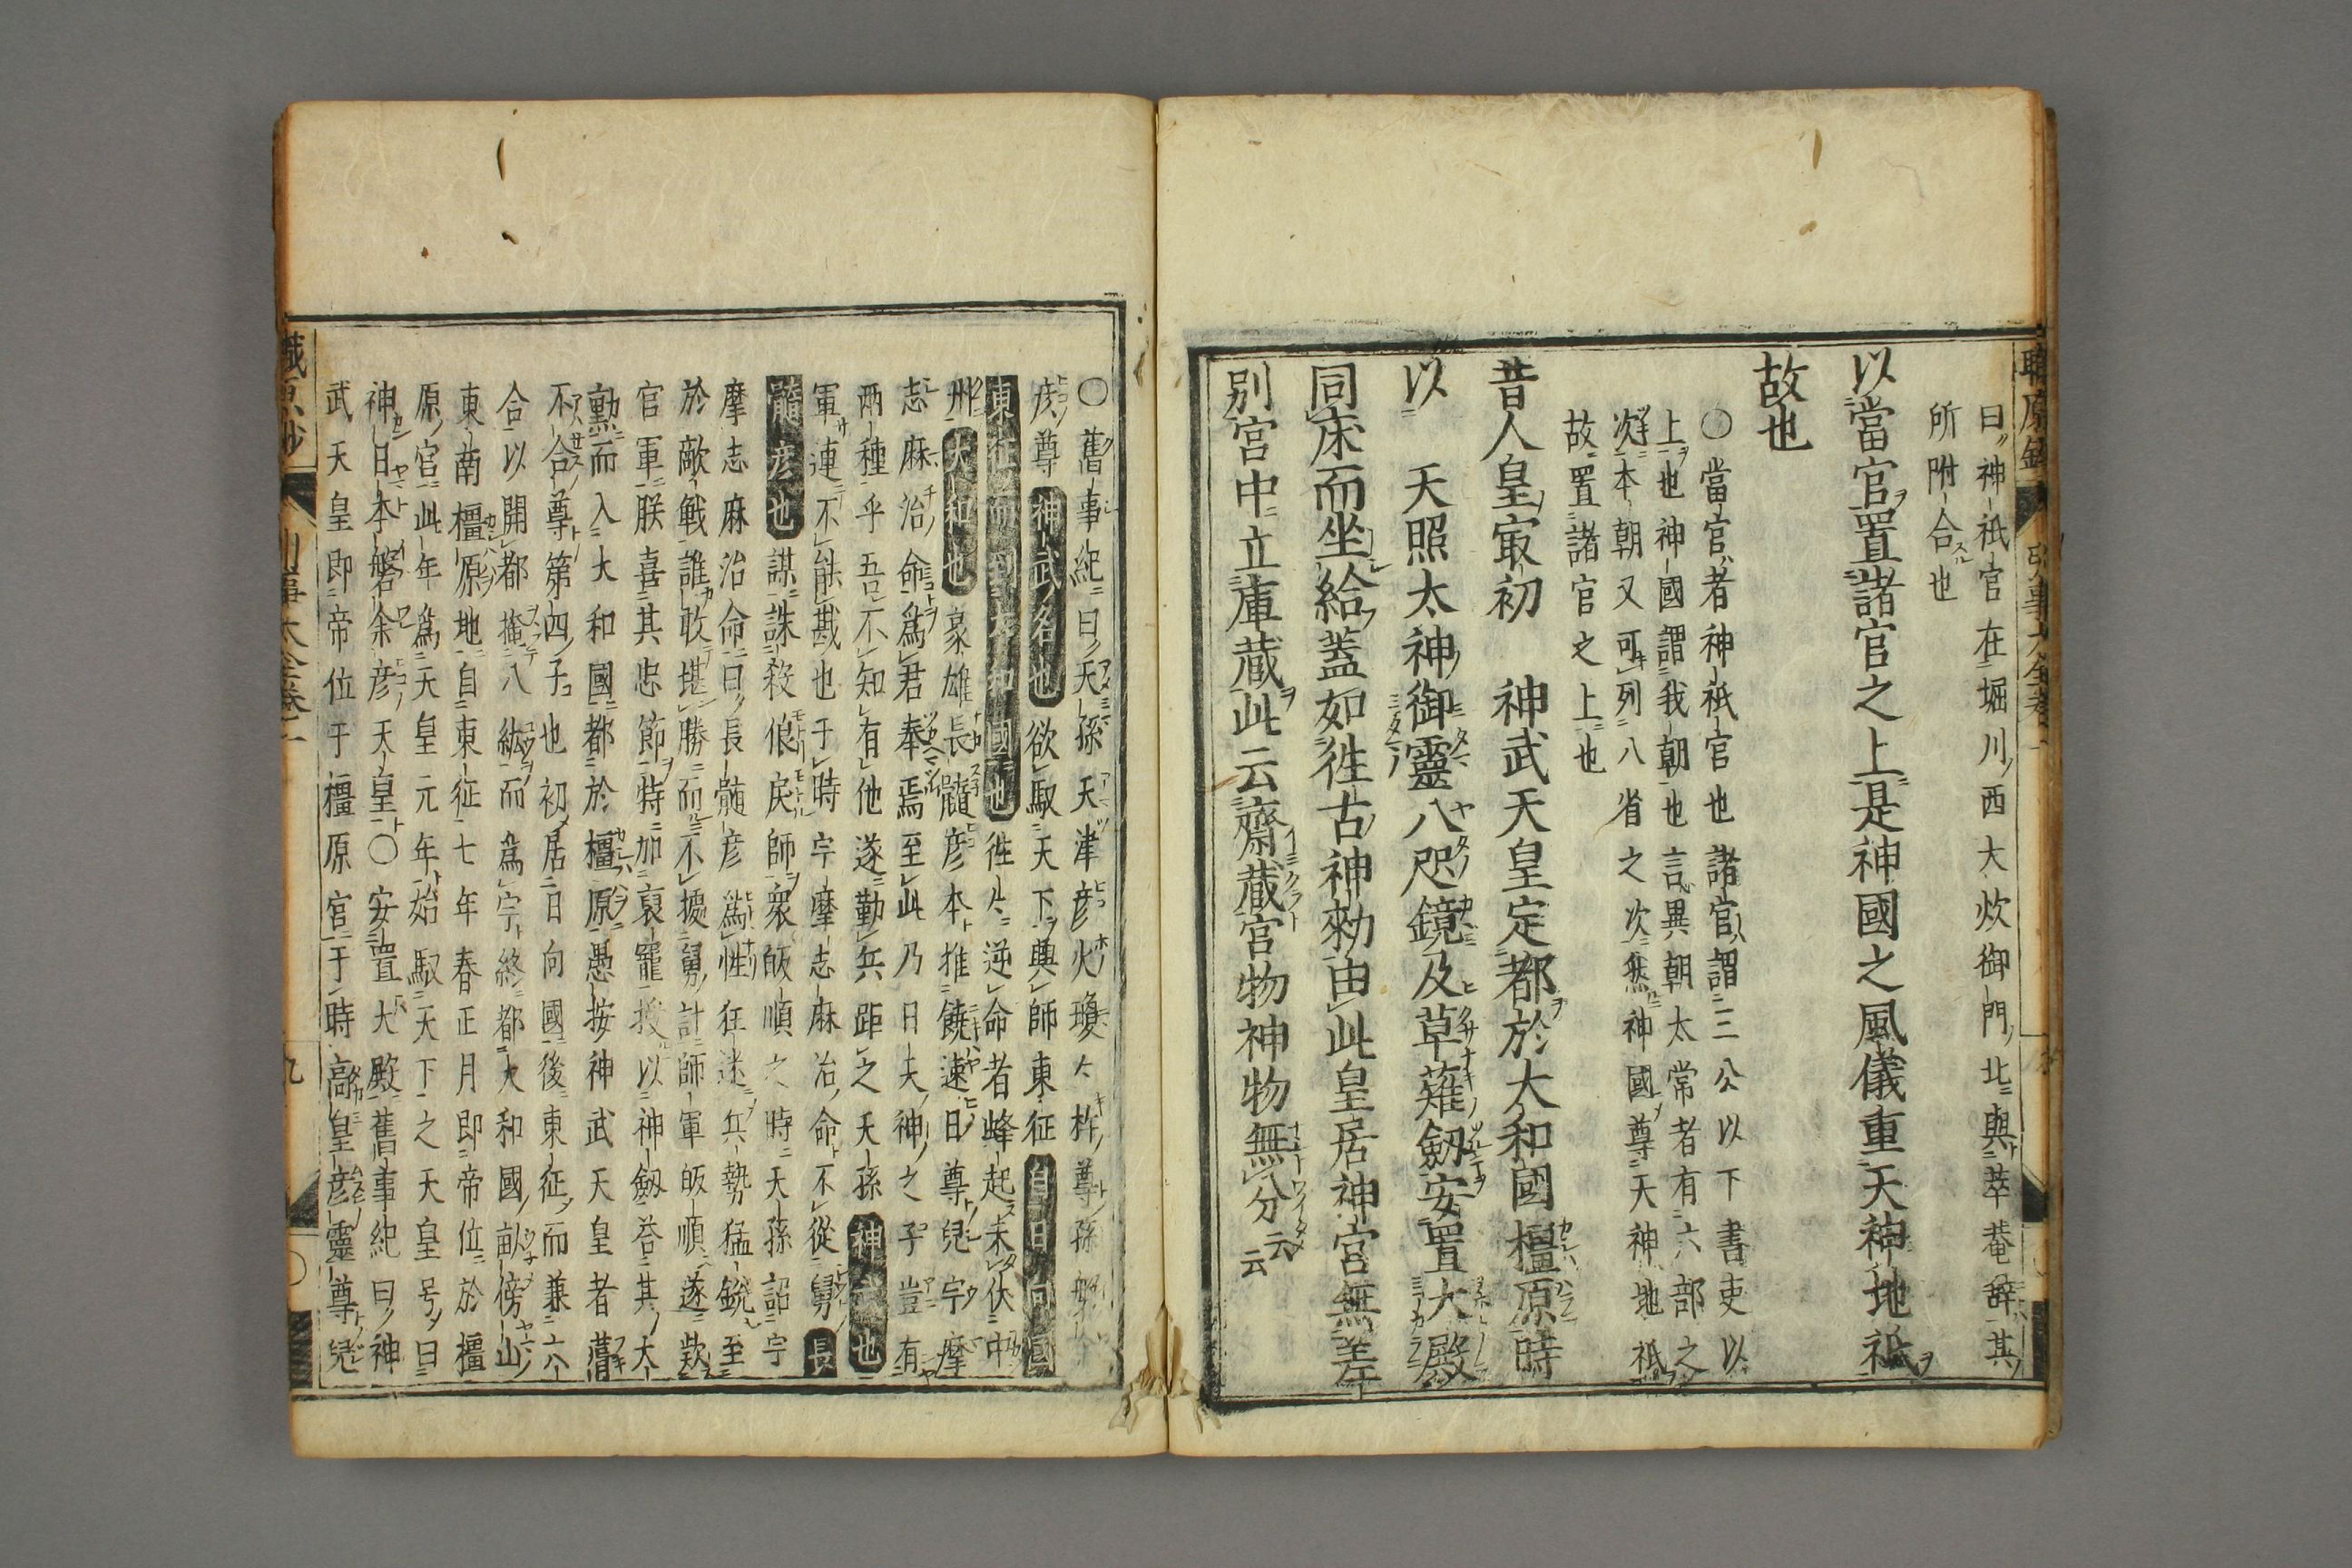 曰神祇官在堀川西大炊御門北與萃菴辭其
所附合也
以當官置諸官之上是神國之風儀重天神地祇
故也
〇當官者神祇官也諸官謂三公以下書吏以
上也神國謂我朝也言異朝太常者有六部之
次本朝又可列八省之次然神國尊天神地祇
故置諸官之上也
昔人皇㝡初 神武天皇定都於大和國橿原時
以 天照太神御靈八咫鏡及草薙劔安置大殿
同床而坐給蓋如徃古神勑由此皇居神宮無差
別宮中立庫蔵此云齋蔵官物神物無分云云
〇舊事紀曰天孫天津彦火瓊々杵尊孫磐余
彦尊神武名也欲馭天下興師東征自日向國
東征而到大和國也徃々逆命者蜂起未伏中
州大和也豪雄長髓彦本推饒速日尊兒宇摩
志麻治命爲君奉焉至此乃曰夫神之子豈有
兩種乎吾不知有他遂勤兵距之天孫神武也
軍連不能戡也于時宇摩志麻治命不從舅長
髓彦也謀誅殺佷戻師衆皈順之時天孫詔宇
摩志麻治命曰長髓彦爲性狂迷兵勢猛鋭至
於敵戰誰敢堪勝而不據舅計師軍皈順遂欵
官軍朕喜其忠節特加哀寵授以神劔荅其大
勲而入大和國都於橿原愚按神武天皇者葺
不合尊第四子也初居日向國後東征而兼六
合以開都掩八紘而爲宇終都大和國畝傍山
東南橿原地自東征七年春正月即帝位於橿
原宮此年爲天皇元年始馭天下之天皇号曰
神日本磐余彦天皇〇安置大殿舊事紀曰神
武天皇即帝位于橿原宮于時高皇彦靈尊兒